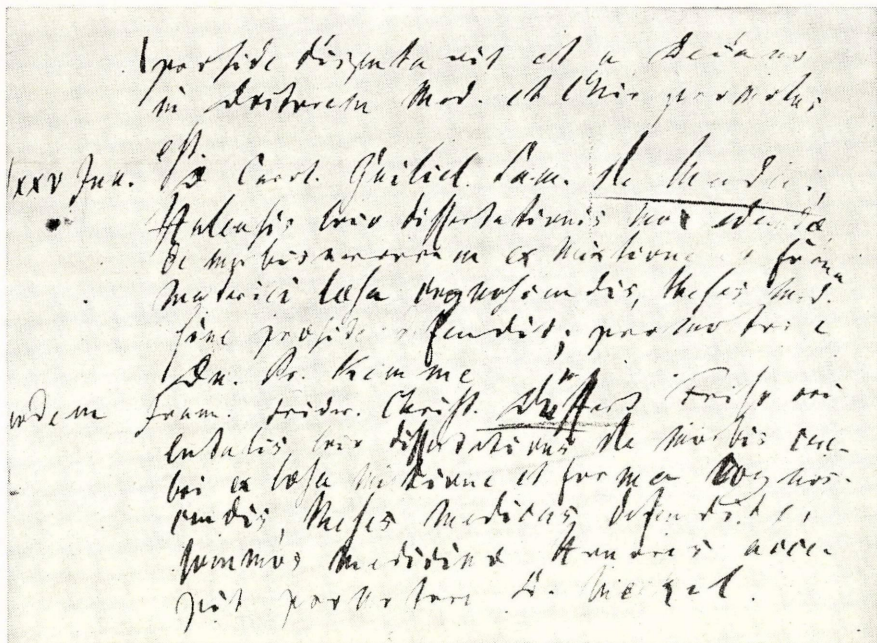 praeside disputavit et a Decano
in Doctorem Med. et Chir promotus
est
xxv Jun. D Carol. Guiliel. Sam. de
Halensis loco dissertationis mox edendæ
de morbis nervorum ex mixtione forma
materiei læsa cognoscendis, theses med.
sine præside defendit; promotore
Dn. Pr. Kemme
eodem Frider. Christ. Düffert Frisp ori
entalis, loco dissertationis de morbis
ex læsa mixtione et forma cognos-
cendis theses medicas defendit et
summos medicinæ Honores acce-
pit promotore D. Meckel.